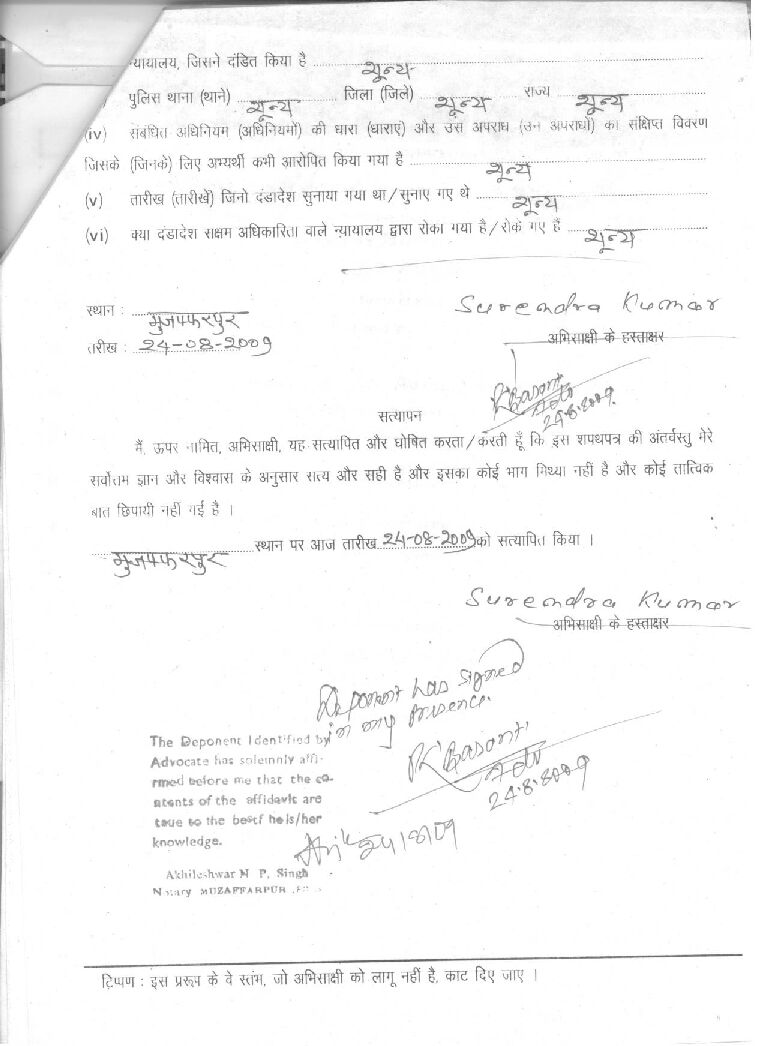 न्यायालय, जिसने दंडित किया है शून्य
पुलिस थाना (थाने) शून्य जिला (जिले) शून्य राज्य शून्य
(iv) संबंधित अधिनियम (अधिनियमों) की धारा (धाराएं) और उस अपराध (उन अपराधों) का संक्षिप्त विवरण
जिसके (जिनके) लिए अभ्यर्थी कभी आरोपित किया गया है शून्य
(v) तारीख (तारीखें) जिनो दंडादेश सुनाया गया था/सुनाए गए थे शून्य
(vi) क्या दंडादेश सक्षम अधिकारिता वाले न्यायालय द्वारा रोका गया है/रोके गए हैं शून्य
स्थान : मुजफ्फरपुर
Surendra Kumar
अभिसाक्षी के हस्ताक्षर
तारीख : 24-08-2009
Basant
Adv
24.8.2009
सत्यापन
मैं, ऊपर नामित, अभिसाक्षी, यह सत्यापित और घोषित करता/करती हूँ कि इस शपथपत्र की अंतर्वस्तु मेरे
सर्वोतम ज्ञान और विश्वास के अनुसार सत्य और सही है और इसका कोई भाग मिथ्या नहीं है और कोई तात्विक
बात छिपायी नहीं गई है ।
मुजफ्फरपुर स्थान पर आज तारीख 24-08-2009 को सत्यापित किया ।
Surendra Kumar
अभिसाक्षी के हस्ताक्षर
Deponent has signed
in my presence.
Basant
Adv
24.8.2009
The Deponent Identified by
Advocate has solemnly affi-
rmed before me that the co-
ntents of the affidavit are
true to the bestf he is/her
knowledge.
24/8/09
Akhileshwar N P. Singh
Notary MUZAFFARPUR
टिप्पण : इस प्ररूप के वे स्तंभ, जो अभिसाक्षी को लागू नहीं है, काट दिए जाए ।